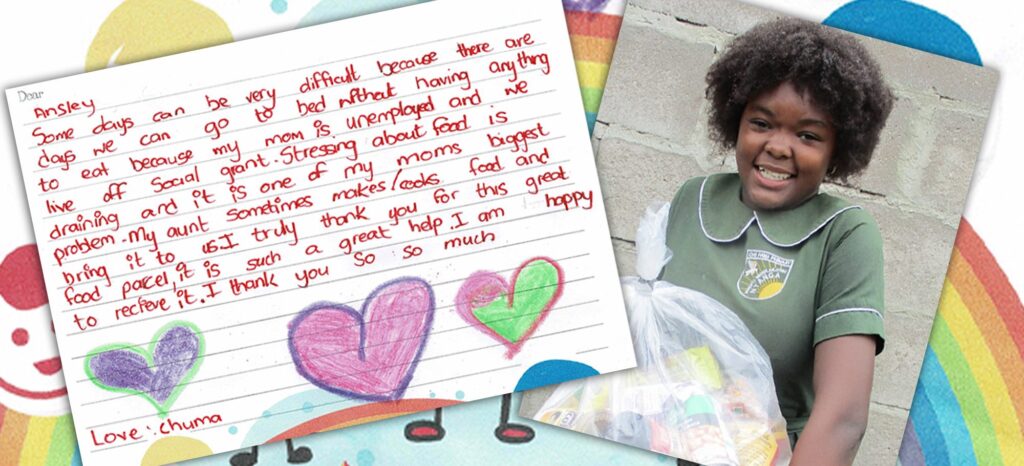 Dear
Ansley
Some days can be very difficult because there are
days we can go to bed without having anything
to eat because my mom is unemployed and we
live off Social grant. Stressing about food is
draining and it is one of my moms biggest
problem. My aunt sometimes makes/cooks food and
bring it to us. I truly thank you for this great
food parcel, it is such a great help. I am happy
to recieve it. I thank you so so much
Love: Chuma
NYANGA